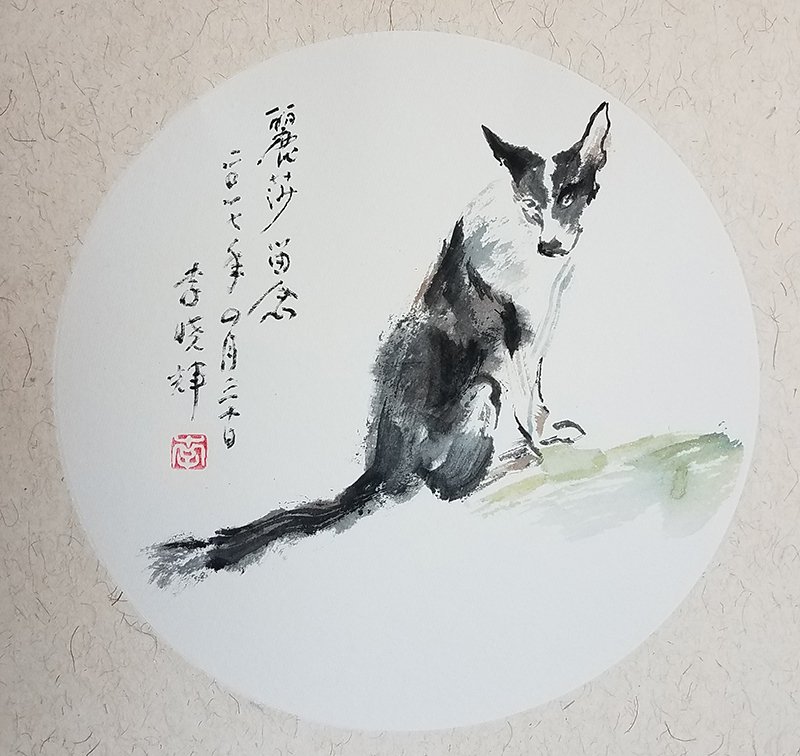 麗莎留念
二〇一七年四月二十日
李曉輝
李